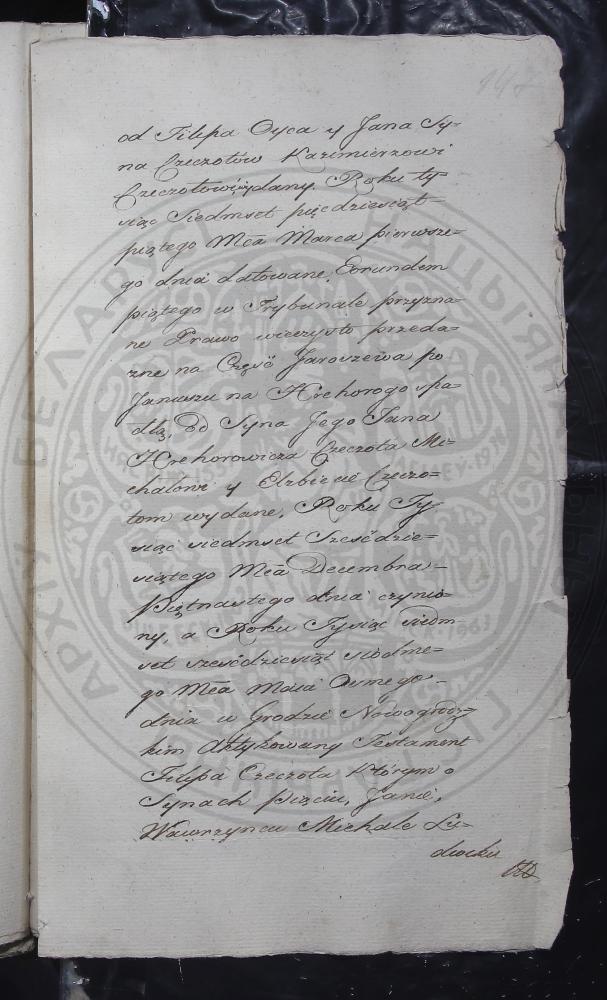 147
od Filipa Oyca y Jana Sy=
na Czeczotów Kazimierzowi
Czeczotowi wydany. Roku ty=
siąc Siedmset pięcdziesiąt=
piątego Mca Marca pierwsze=
go dnia datowane, Eorundem
piątego w Trybunale przyzna=
ne Prawo wieczysto przeda=
zne na Część Jaroszewa po
Januszu na Hrehorego spa=
dłą, od Syna Jego Jana
Hrehorowicza Czeczota Mi=
chałowi y Elzbiecie Czeczo=
tom wydane, Roku Ty=
siąc siedmset Sześćdzie=
siątego Mca Decembra
Piętnastego dnia czynio=
ny, a Roku Tysiąc siedm
set sześćdziesiąt siódme=
go Mca Maia Osmego
dnia w Grodzie Nowogrodz=
kim Aktykowany Testament
Filipa Czeczota Którym o
Synach pięciu, Janie,
Wawrzyncu Michale Lu=
dwiku